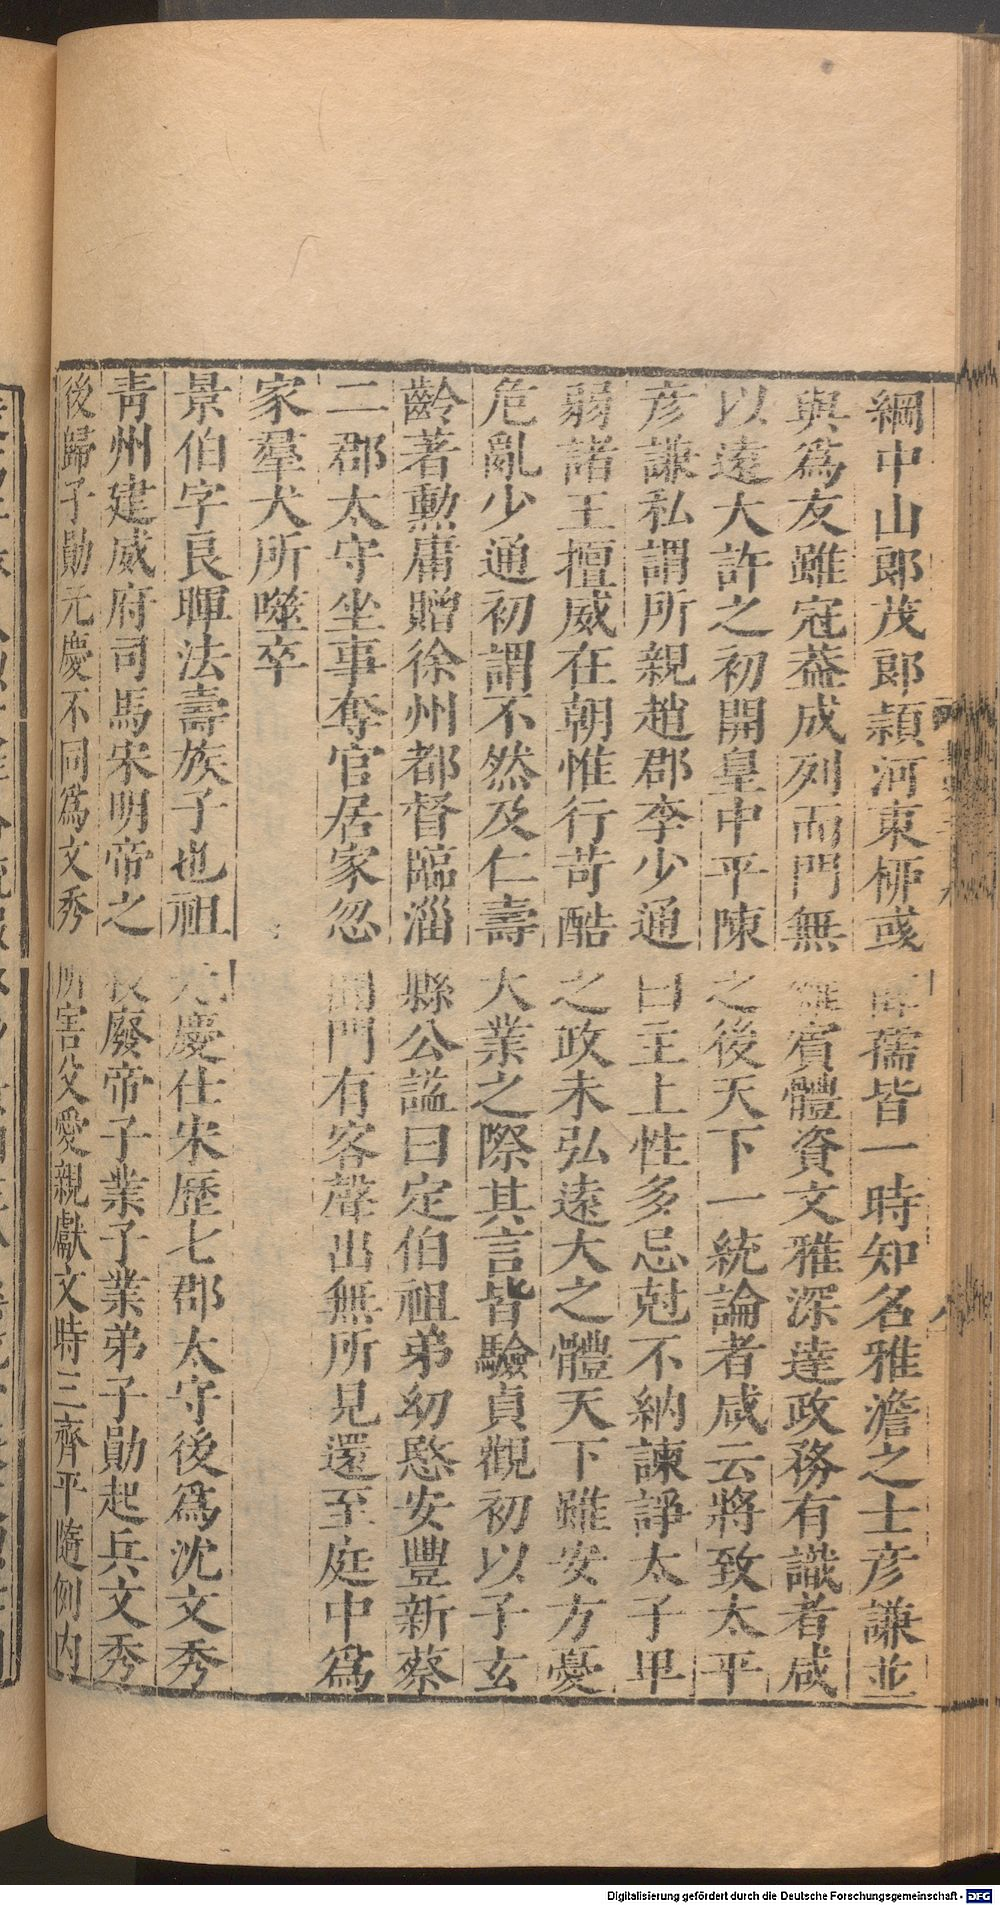 綱中山郎茂郎穎河東柳彧薛孺皆一時知名雅澹之士彥謙並
與爲友雖冠蓋成列而門無雜賓體資文雅深達政務有識者咸
以遠大許之初開皇中平陳之後天下一統論者咸云將致太平
彥謙私謂所親趙郡李少通曰主上性多忌尅不納諫諍太子卑
弱諸王擅威在朝惟行苛酷之政未弘遠大之體天下雖安方憂
危亂少通初謂不然及仁壽大業之際其言皆驗貞觀初以子玄
齡著勲庸贈徐州都督臨淄縣公謚曰定伯祖弟幼愍安豐新蔡
二郡太守坐事奪官居家忽聞門有客聲出無所見還至庭中爲
家羣犬所噬卒
景伯字良暉法壽族子也祖元慶仕宋歷七郡太守後爲沈文秀
青州建威府司馬宋明帝之殺廢帝子業子業弟子勛起兵文秀
後歸子勛元慶不同爲文秀所害父愛親獻文時三齊平隨例內
Digitalisierung gefördert durch die Deutsche Forschungsgemeinschaft - DFG